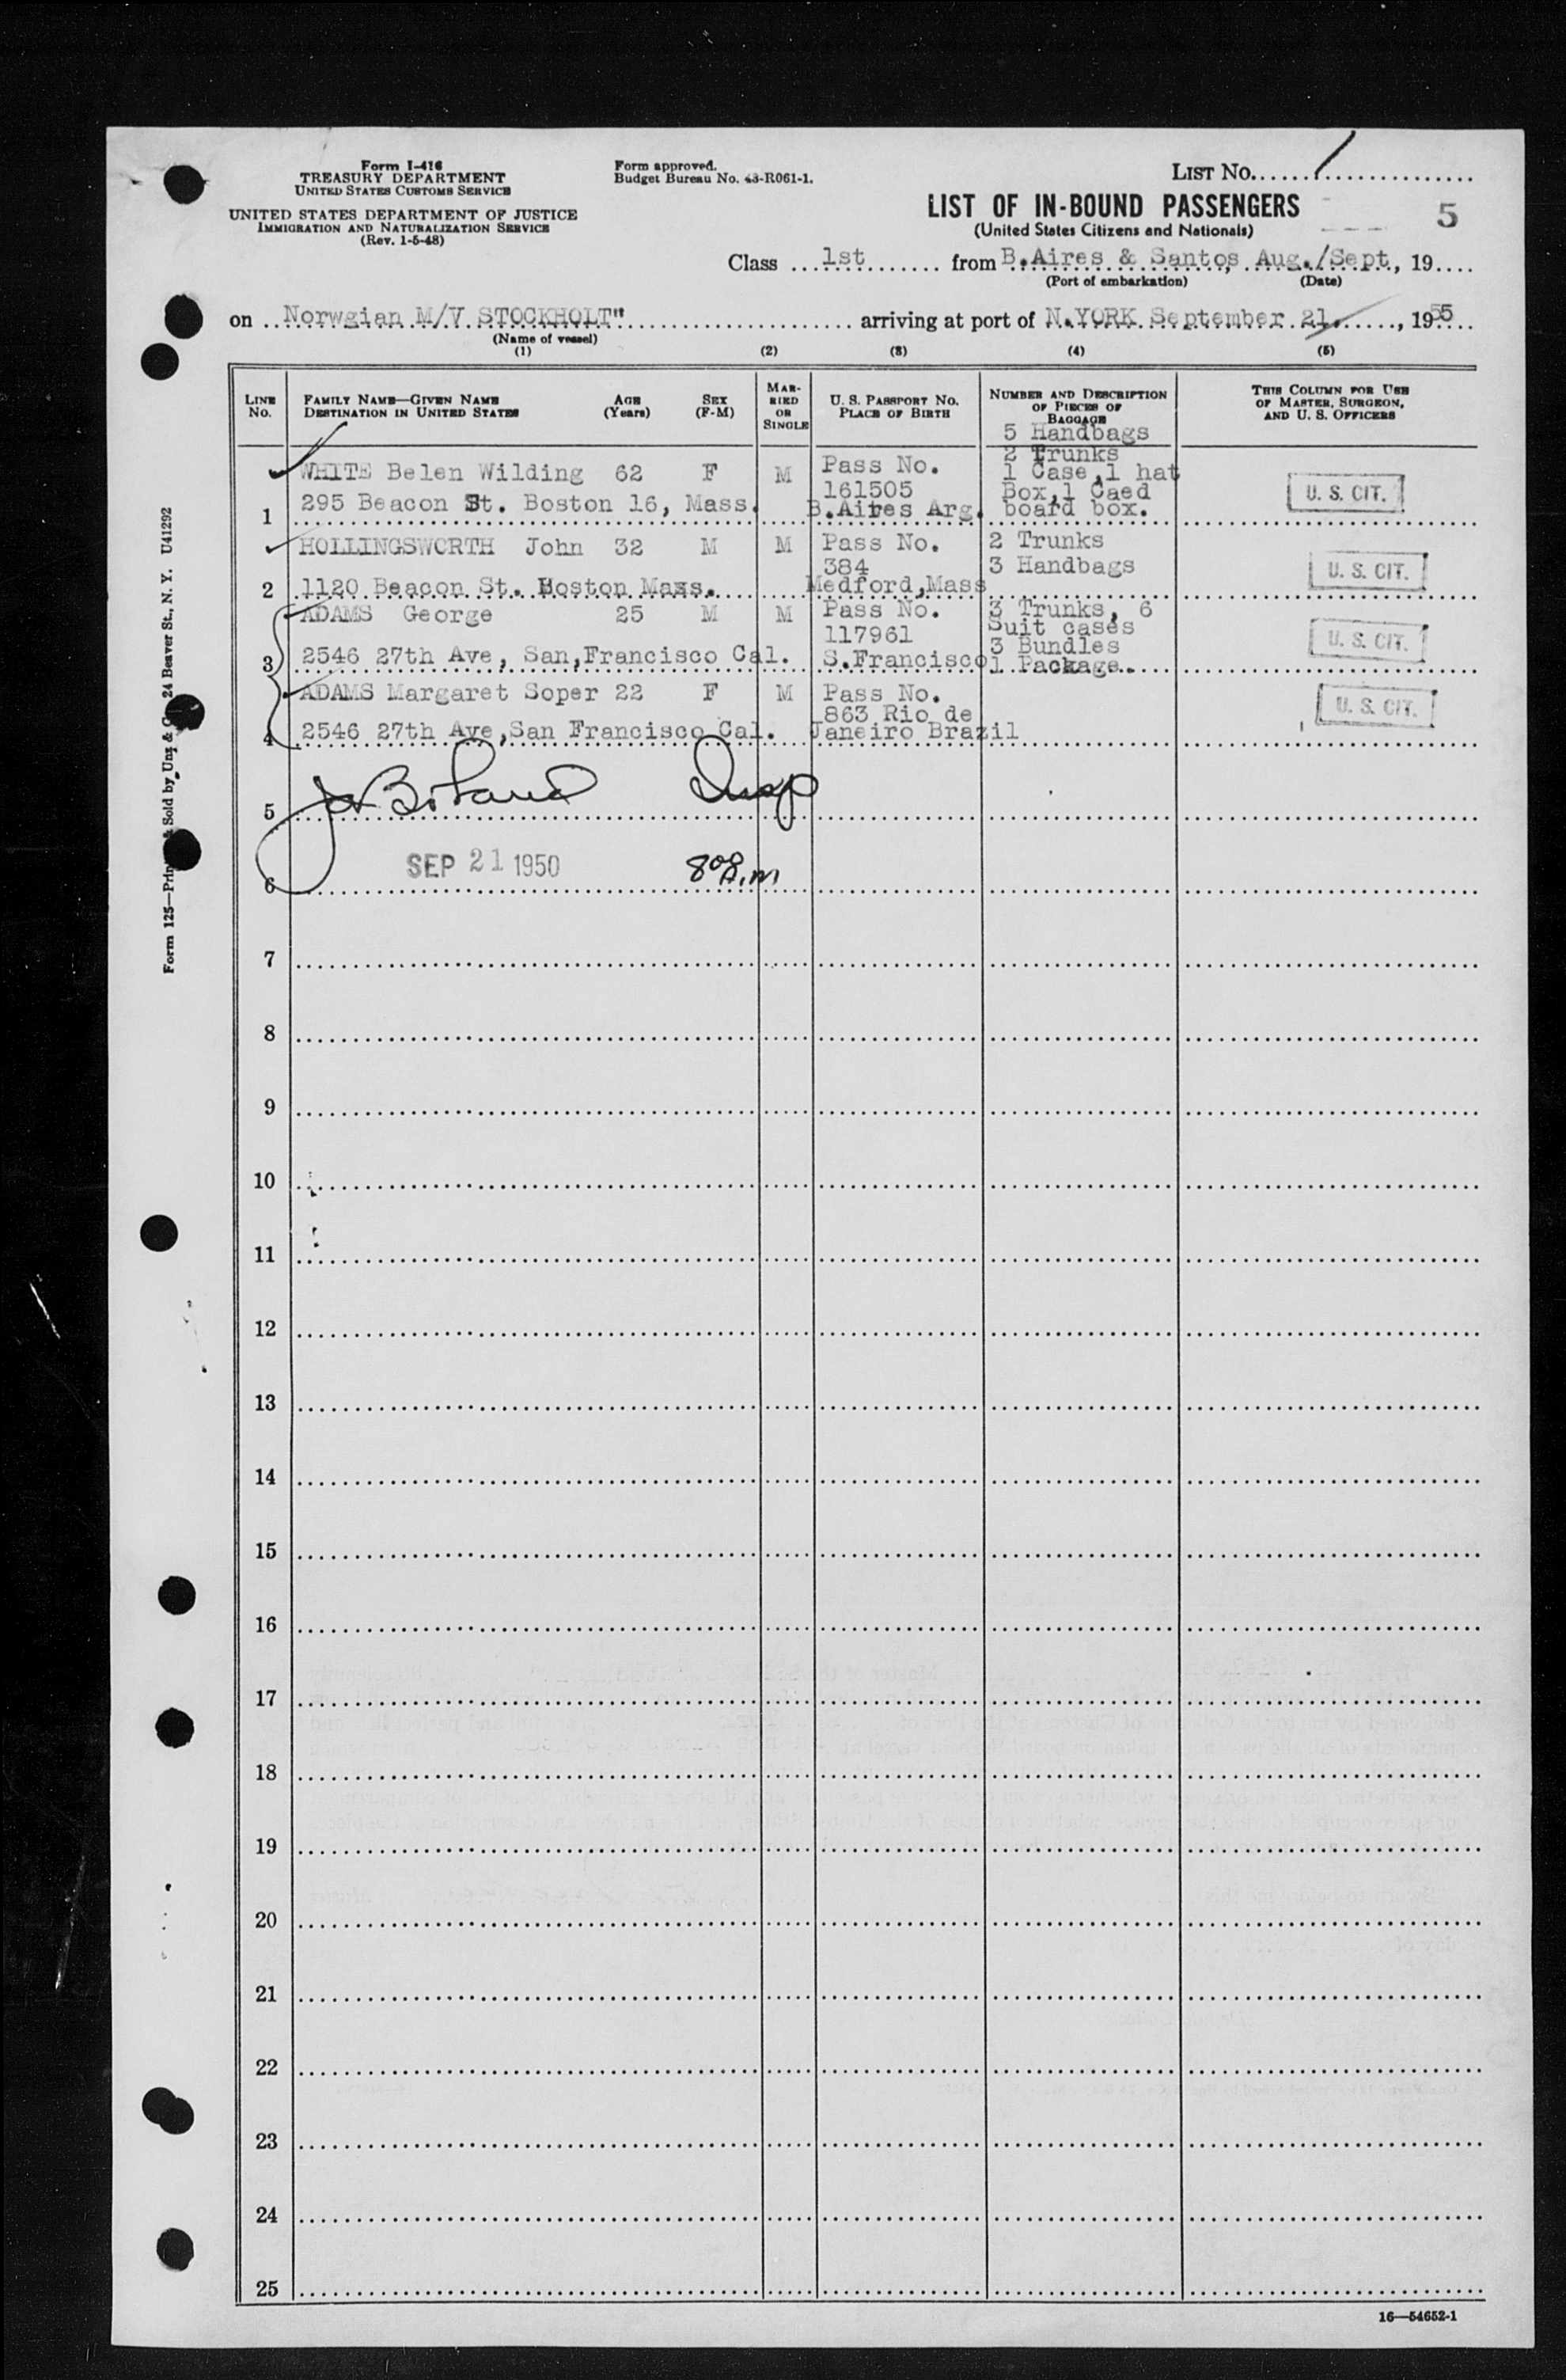 Form I-416
TREASURY DEPARTMENT
UNITED STATES CUSTOMS SERVICE
UNITED STATES DEPARTMENT OF JUSTICE
IMMIGRATION AND NATURALIZATION SERVICE
(Rev. 1-5-48)
Form approved.
Budget Bureau No. 43-R061-1.
LIST No. 1
LIST OF IN-BOUND PASSENGERS
(United States Citizens and Nationals)
5
Class 1st from B.Aires & Santos, Aug./Sept, 19
(Port of embarkation) (Date)
on Norwgian M/V STOCKHOLT" arriving at port of N.YORK September 21, 1955
(Name of vessel)
(1) (2) (3) (4) (5)
LINE No.
FAMILY NAME—GIVEN NAME
DESTINATION IN UNITED STATES
AGE (Years)
SEX (F-M)
MARRIED OR SINGLE
U. S. PASSPORT NO.
PLACE OF BIRTH
NUMBER AND DESCRIPTION OF PIECES OF BAGGAGE
THIS COLUMN FOR USE OF MASTER, SURGEON, AND U. S. OFFICERS
5 Handbags
2 Trunks
WHITE Belen Wilding 62 F M Pass No. 1 Case,1 hat
161505 Box,1 Caed U. S. CIT.
1 295 Beacon St. Boston 16, Mass. B.Aires Arg. board box.
HOLLINGSWORTH John 32 M M Pass No. 2 Trunks
384 3 Handbags U. S. CIT.
2 1120 Beacon St. Boston Mass. Medford,Mass
ADAMS George 25 M M Pass No. 3 Trunks, 6
117961 Suit cases U. S. CIT.
3 Bundles
3 2546 27th Ave, San,Francisco Cal. S.Francisco 1 Package.
ADAMS Margaret Soper 22 F M Pass No. U. S. CIT.
863 Rio de
4 2546 27th Ave,San Francisco Cal. Janeiro Brazil
5 Insp
6 SEP 21 1950
7
8
9
10
11
12
13
14
15
16
17
18
19
20
21
22
23
24
25
16—54652-1
Form 125—Prin & Sold by Unz & Co 24 Beaver St., N. Y. U41292